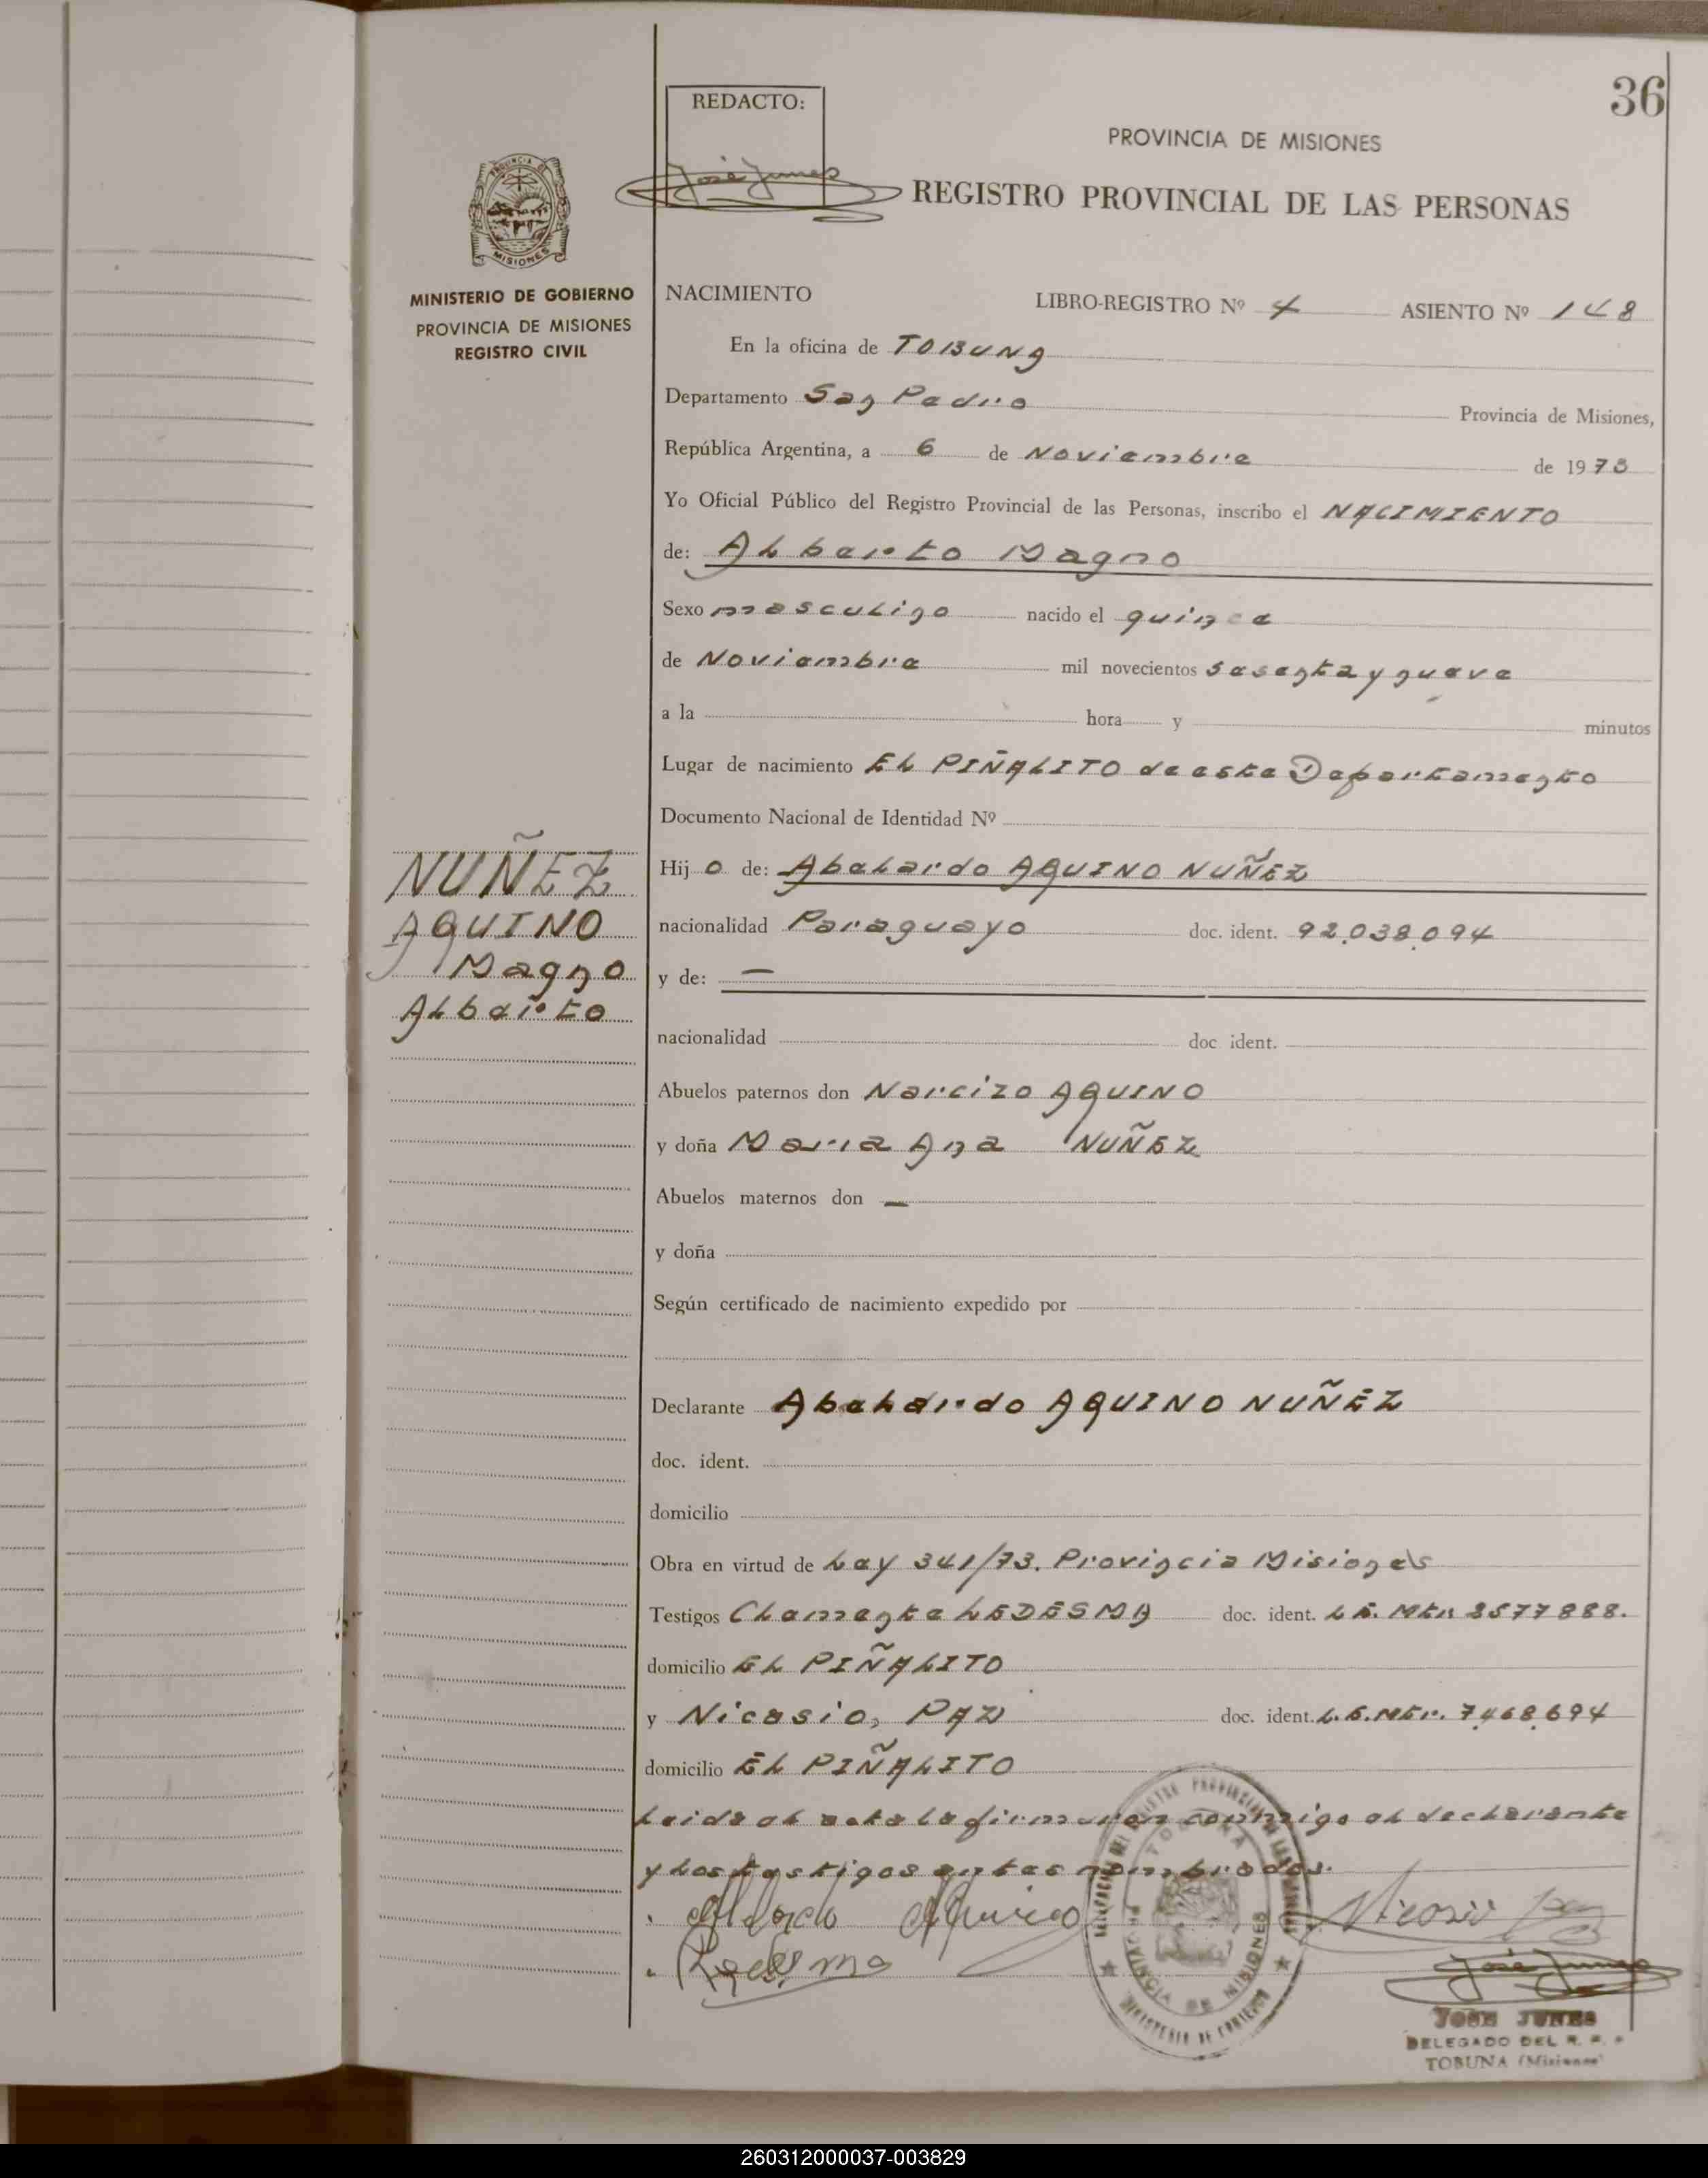 36
REDACTO:
PROVINCIA DE MISIONES
REGISTRO PROVINCIAL DE LAS PERSONAS
PROVINCIA DE
MISIONES
MINISTERIO DE GOBIERNO
PROVINCIA DE MISIONES
REGISTRO CIVIL
NACIMIENTO LIBRO-REGISTRO Nº 4 ASIENTO Nº 148
En la oficina de TOBUNA
Departamento San Pedro Provincia de Misiones,
República Argentina, a 6 de Noviembre de 1973
Yo Oficial Público del Registro Provincial de las Personas, inscribo el NACIMIENTO
de: Alberto Magno
Sexo masculino nacido el quince
de Noviembre mil novecientos sesenta y nueve
a la hora y minutos
Lugar de nacimiento EL PIÑALITO de este Departamento
Documento Nacional de Identidad Nº
NUÑEZ
AQUINO
Magno
Alberto
Hij o de: Abelardo AQUINO NUÑEZ
nacionalidad Paraguayo doc. ident. 92.038.094
y de: —
nacionalidad doc ident.
Abuelos paternos don Narcizo AQUINO
y doña Maria Ana NUÑEZ
Abuelos maternos don —
y doña
Según certificado de nacimiento expedido por
Declarante Abelardo AQUINO NUÑEZ
doc. ident.
domicilio
Obra en virtud de Ley 341/73. Provincia Misiones
Testigos Clemente LEDESMA doc. ident. L.E. Mtr. 3577888.
domicilio EL PIÑALITO
y Nicasio, PAZ doc. ident. L.E. Mtr. 7.468.694
domicilio EL PIÑALITO
Leida el acta la firmaron conmigo el declarante
y los testigos antes nombrados.
Aquino
Ledesma
JOSE JUNES
DELEGADO DEL R. P. P
TOBUNA (Misiones)
TOBUNA
PROVINCIA DE MISIONES
MINISTERIO DE GOBIERNO
260312000037-003829